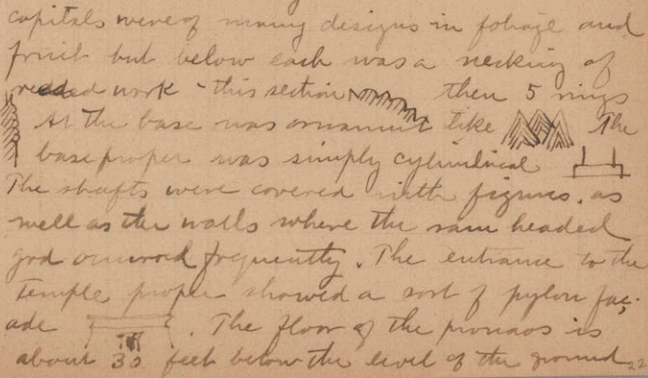 capitals were of many designs in foliage and
fruit but below each was a necking of
reeded work - this section then 5 rings
At the base was ornament like The
base proper was simply cylindrical
The shafts were covered with figures, as
well as the walls where the ram headed
god occurred frequently. The entrance to the
temple proper showed a sort of pylon faç-
ade . The floor of the pronaos is
about 30 feet below the level of the ground